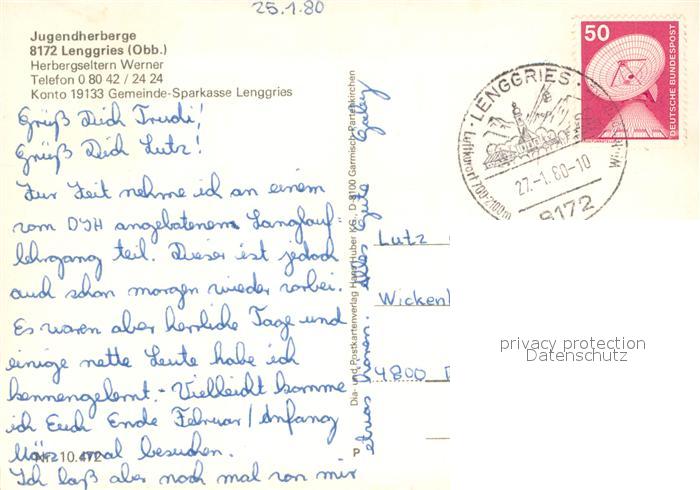 25.1.80
Jugendherberge
8172 Lenggries (Obb.)
Herbergseltern Werner
Telefon 0 80 42 / 24 24
Konto 19133 Gemeinde-Sparkasse Lenggries
Grüß Dich Trudi!
Grüß Dich Lutz!
Zur Zeit nehme ich an einem
vom DJH angebotenem Langlauf-
lehrgang teil. Dieser ist jedoch
auch schon morgen wieder vorbei.
Es waren aber herrliche Tage und
einige nette Leute habe ich
kennengelernt. - Vielleicht komme
ich Euch Ende Februar / Anfang
März mal besuchen.
Nr. 10.472
Ich laß aber noch mal von mir
etwas hören. Alles Gute Gaby
Dia- und Postkartenverlag Hans Huber KG., D-8100 Garmisch-Partenkirchen
P
50
DEUTSCHE BUNDESPOST
LENGGRIES
Luftkurort 700-2100m
27.-1.80-10
8172
Lutz
Wicken
4800
privacy protection
Datenschutz